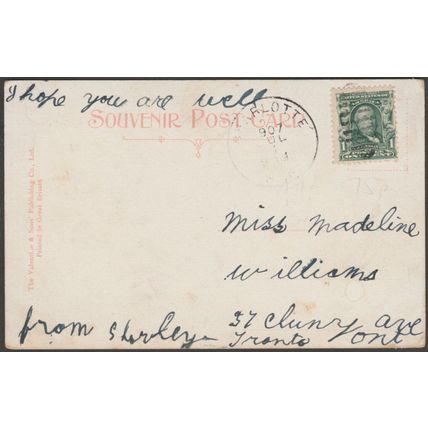 I hope you are well
SOUVENIR POST CARD
RLOTTE
907
1 ONE CENT 1
The Valentine & Sons' Publishing Co., Ltd.
Printed in Great Britain
Miss Madeline
Williams
from Shirley
37 Cluny ave
Tronto ont